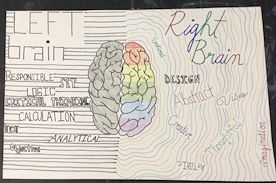 LEFT
Brain
RESPONSIBLE
LOGIC
CRITICAL THINKING
CALCULATION
ANALYTICAL
Objective
Right
Brain
DESIGN
Abstract
Visual
Creative
Thoughtful
Artistic
Imagination